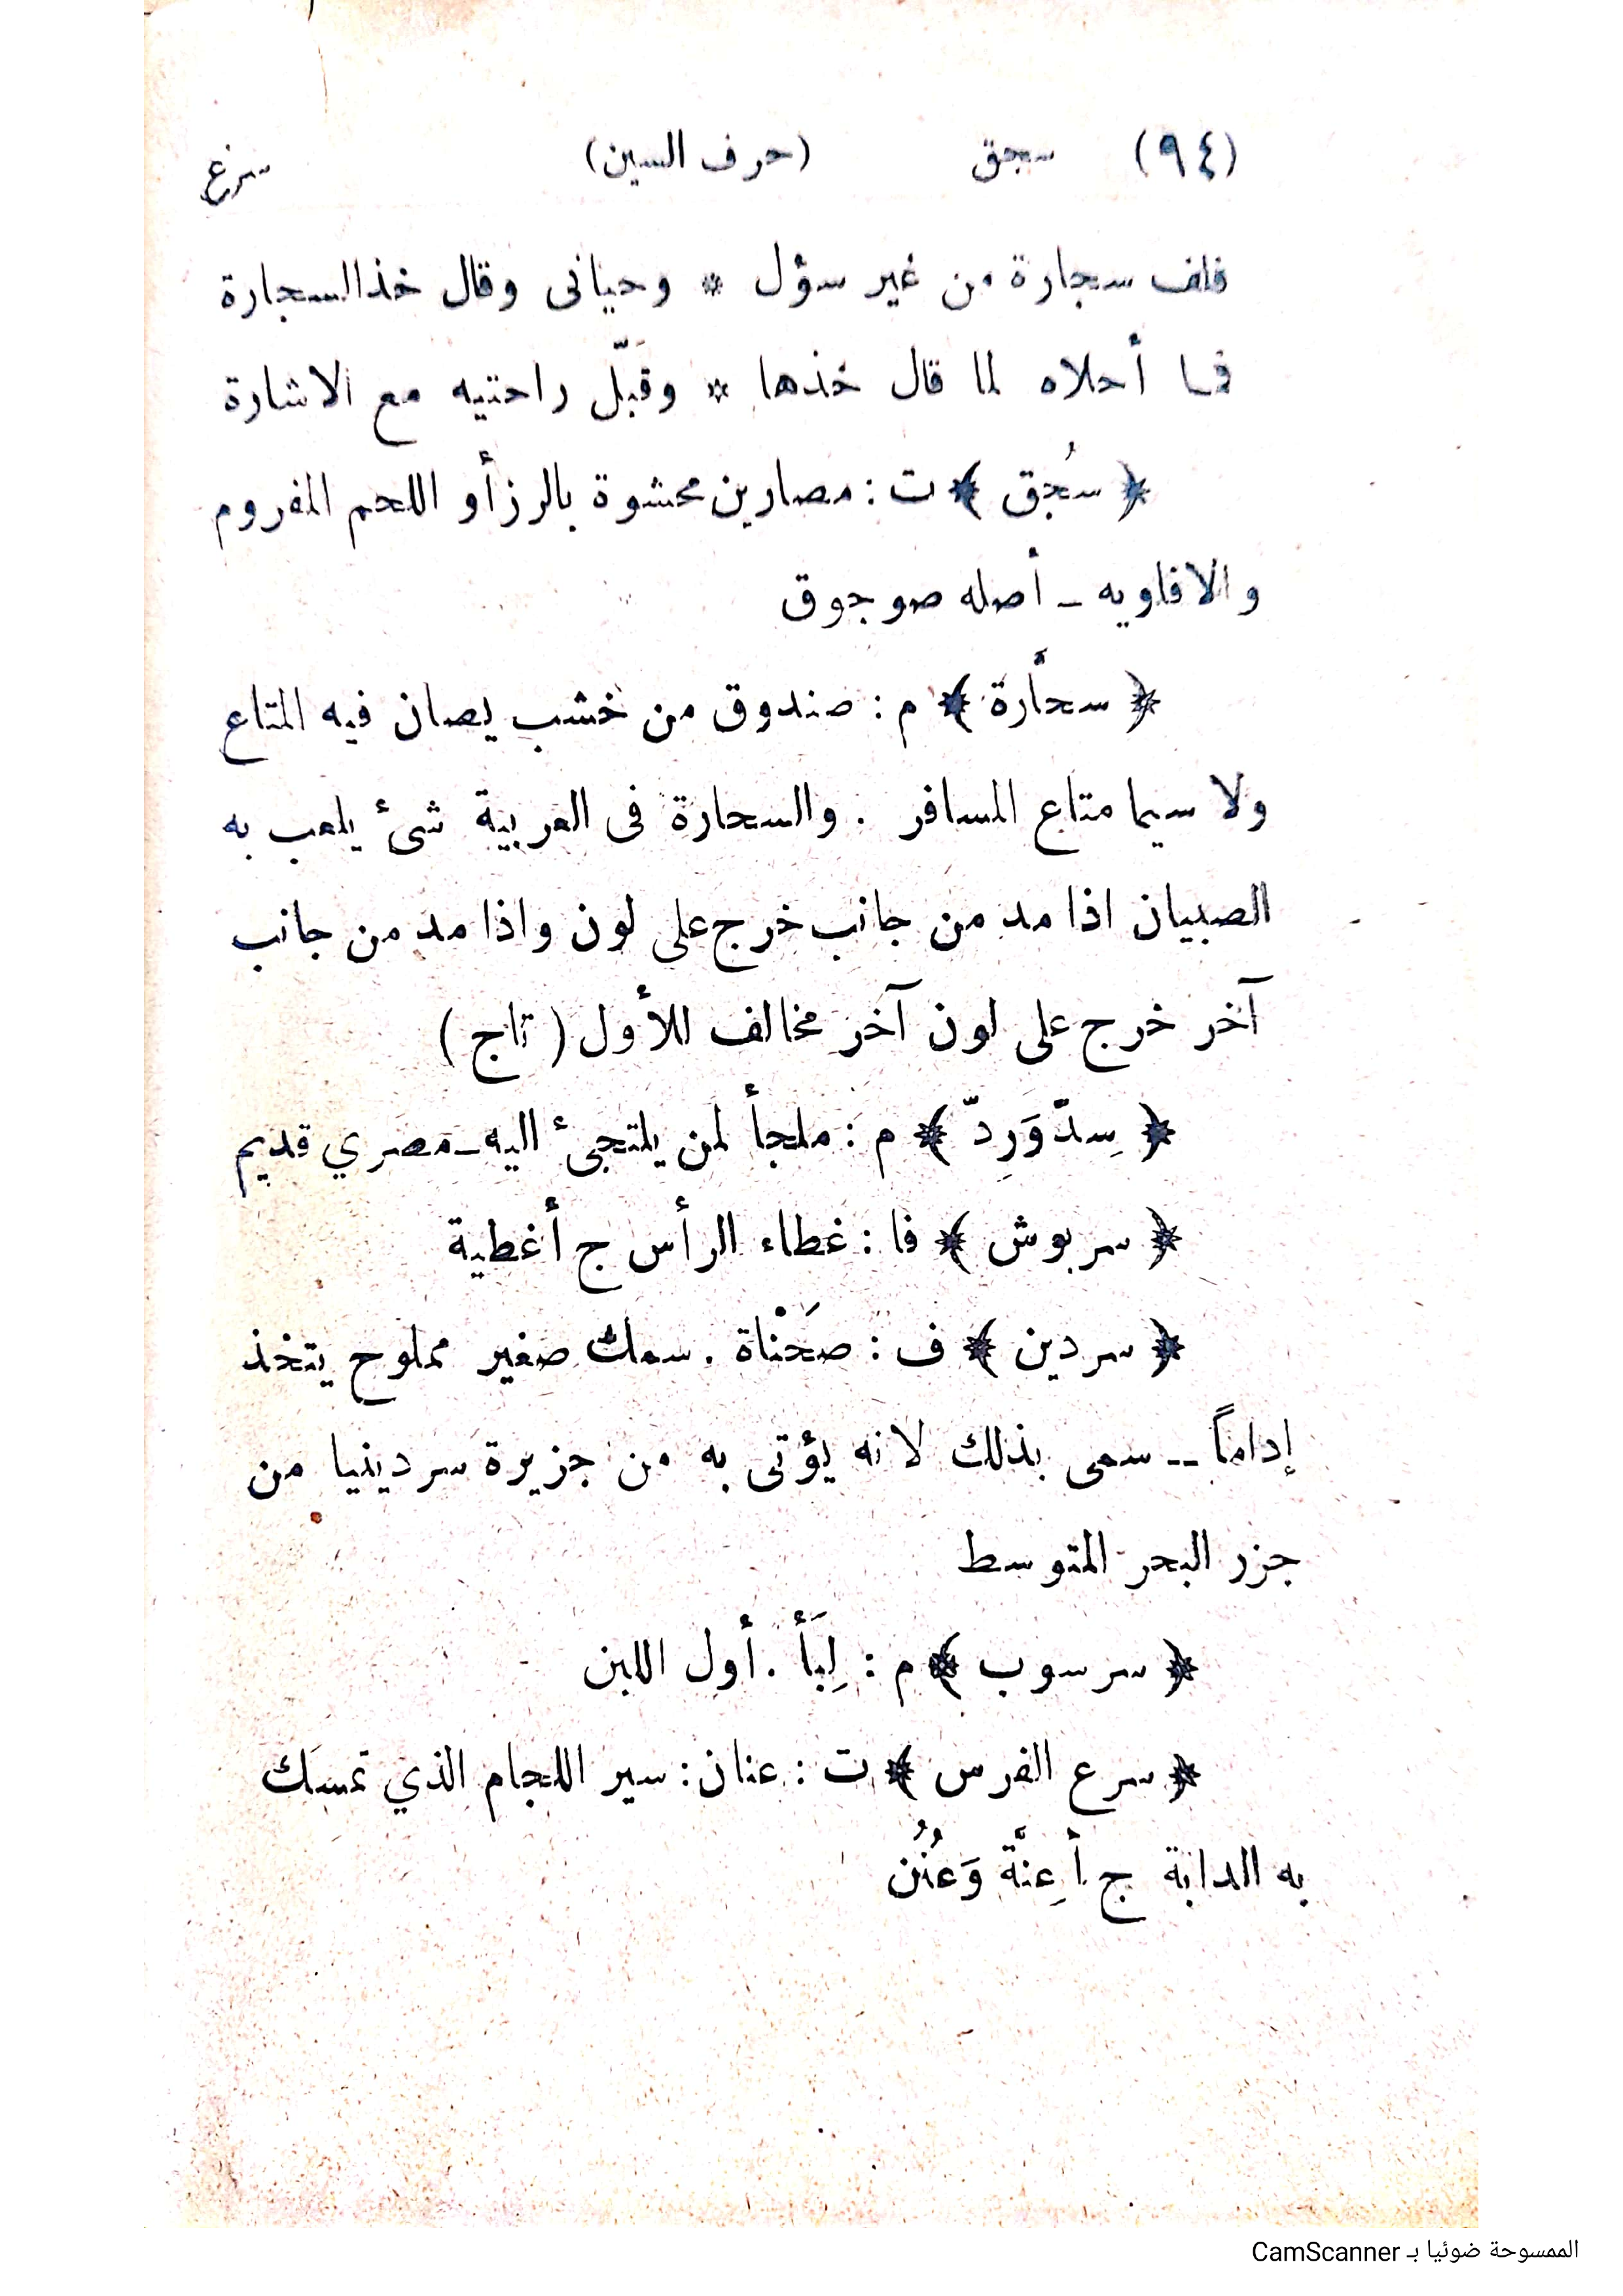 (٩٤) سجق (حرف السين) سرع
فلف سجارة من غير سؤل * وحيانى وقال خذ السجارة
فما أحلاه لما قال خذها * وقَبّل راحتيه مع الاشارة
﴿ سُجق ﴾ ت : مصارين محشوة بالرز أو اللحم المفروم
والافاويه ـ أصله صوجوق
﴿ سحَّارة ﴾ م : صندوق من خشب يصان فيه المتاع
ولا سيما متاع المسافر . والسحارة فى العربية شئ يلعب به
الصبيان اذا مد من جانب خرج على لون واذا مد من جانب
آخر خرج على لون آخر مخالف للأول ( تاج )
﴿ سِدّوَرِدّ ﴾ م : ملجأ لمن يلتجئ اليه ـ مصري قديم
﴿ سربوش ﴾ فا : غطاء الرأس ج أغطية
﴿ سردين ﴾ ف : صَحْناة . سمك صغير مملوح يتخذ
إداماً ــ سمى بذلك لانه يؤتى به من جزيرة سردينيا من
جزر البحر المتوسط
﴿ سرسوب ﴾ م : لِبَأ . أول اللبن
﴿ سرع الفرس ﴾ ت : عنان : سير اللجام الذي تمسَك
به الدابة ج أعِنَّة وَعُنُن
الممسوحة ضوئيا بـ CamScanner